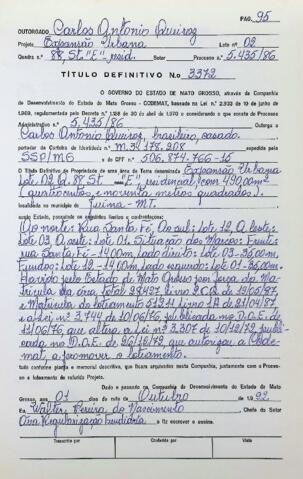 PAG. 95
OUTORGADO Carlos Antonio Queiroz
Projeto Expansão Urbana Lote nº 02
Quadra n.º 88, St. "E", resid. Processo n.º 5.435/86
TÍTULO DEFINITIVO N.o 3372
O GOVERNO DO ESTADO DE MATO GROSSO, através da Companhia
de Desenvolvimento do Estado de Mato Grosso - CODEMAT, com base na Lei n.º
Administrativo n.º 5.435/86 Outorga a
Carlos Antonio Queiroz, brasileiro, casado.
portador da Carteira de Identidade n.º M. 34.178.208 expedida pelo
SSP/MG e do CPF n.º 506.874.766-15
O Título Definitivo de Propriedade de uma área de Terra denominada Expansão Urbana
Lote 02 Q. 88, ST "E", residencial, com 490,00m²
(quatrocentos e noventa metros quadrados).
localizado no município de Juína - MT.
neste Estado, possuindo os seguintes limites e confrontações:
Ao norte: Rua Santa Fé, Ao sul: Lote 12, A leste:
Lote 03, A oeste: Lote 01. Situação dos Marcos: Frente:
rua Santa Fé - 14,00m, lado direito: Lote 03 - 35,00m.
Fundos: Lote 12 - 14,00m Lado esquerdo: Lote 01 - 35,00m.
Havido pelo Estado de Mato Grosso por força da Ma-
trícula da área total
e Matrícula do Loteamento Livro 2A de 21/04/87,
e a Lei nº 3.744 de 10/06/76, publicada no D.O.E. de
11/06/76, que altera a Lei nº 3.307 de 10/12/72, publi-
cada no D.O.E. de 26/12/72, que autorizou a Code-
mat, a promover o loteamento.
tudo conforme planta e memorial descritivo, que ficam arquivados nesta Companhia, juntamente com o Processo
e Loteamento do referido Projeto.
Dado e passado na Companhia de Desenvolvimento do Estado de Mato
Grosso, aos 01 do mês de Outubro de 1992
Eu Walter Pereira do Nascimento, Chefe do Setor
Regularização Fundiária o fiz escrever e assino.
Transcrito por Conferido por Visto